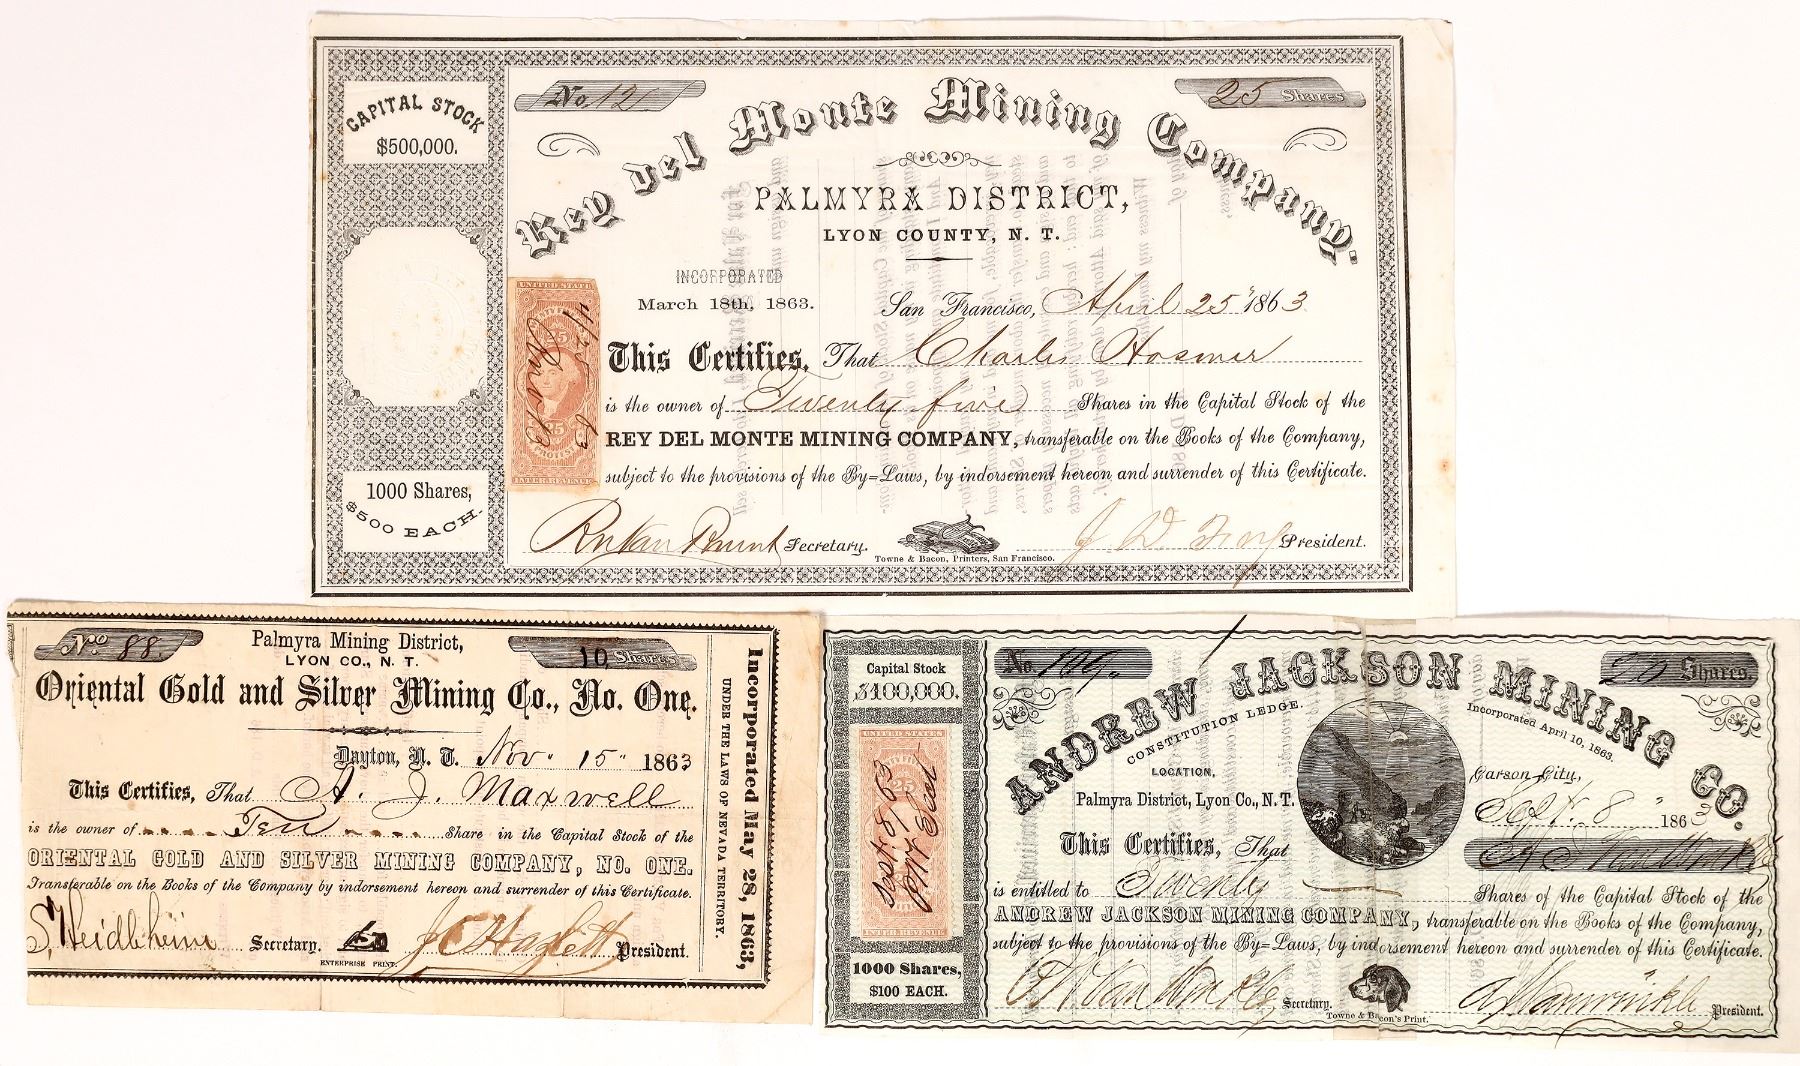 CAPITAL STOCK
$500,000.
1000 Shares,
$500 EACH.
No. 12
25 Shares
Rey del Monte Mining Company.
PALMYRA DISTRICT,
LYON COUNTY, N. T.
INCORPORATED
March 18th, 1863.
San Francisco, April 25" 1863
This Certifies, That Charles Hosmer
is the owner of Twenty five Shares in the Capital Stock of the
REY DEL MONTE MINING COMPANY, transferable on the Books of the Company,
subject to the provisions of the By=Laws, by indorsement hereon and surrender of this Certificate.
Secretary.
President.
Towne & Bacon, Printers, San Francisco.
UNITED STATES
25 25
INTER. REVENUE
4/25 63
No. 88.
Palmyra Mining District,
LYON CO., N. T.
10 Shares
Oriental Gold and Silver Mining Co., No. One.
Dayton, N. T. Nov. 15" 1863
This Certifies, That A. J. Maxwell
is the owner of Ten Share in the Capital Stock of the
ORIENTAL GOLD AND SILVER MINING COMPANY, NO. ONE.
Transferable on the Books of the Company by indorsement hereon and surrender of this Certificate.
S. Heidleheim Secretary.
J C Hazlett President.
ENTERPRISE PRINT.
UNDER THE LAWS OF NEVADA TERRITORY.
Incorporated May 28, 1863,
Capital Stock
$100,000.
UNITED STATES
Sept. 8/63
1000 Shares,
$100 EACH.
No. 109.
20 Shares.
ANDREW JACKSON MINING CO.
CONSTITUTION LEDGE.
Incorporated April 10, 1863.
LOCATION,
Palmyra District, Lyon Co., N. T.
Carson City,
Sept. 8" 1863
This Certifies, That
is entitled to Twenty Shares of the Capital Stock of the
ANDREW JACKSON MINING COMPANY, transferable on the Books of the Company,
subject to the provisions of the By=Laws, by indorsement hereon and surrender of this Certificate.
Van Winkle Secretary.
Vanwinkle President.
Towne & Bacon's Print.